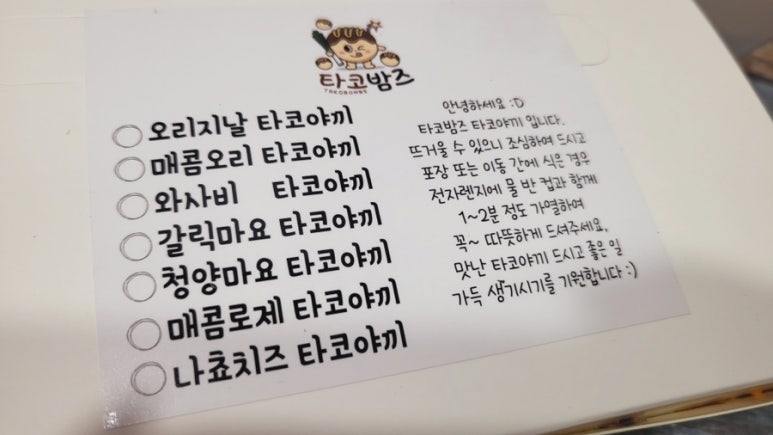 타코밤즈
TAKOBOMBS
오리지날 타코야끼
매콤오리 타코야끼
와사비 타코야끼
갈릭마요 타코야끼
청양마요 타코야끼
매콤로제 타코야끼
나쵸치즈 타코야끼
안녕하세요 :D
타코밤즈 타코야끼 입니다.
뜨거울 수 있으니 조심하여 드시고
포장 또는 이동 간에 식은 경우
전자렌지에 물 반 컵과 함께
1~2분 정도 가열하여
꼭~ 따뜻하게 드셔주세요.
맛난 타코야끼 드시고 좋은 일
가득 생기시기를 기원합니다 :)